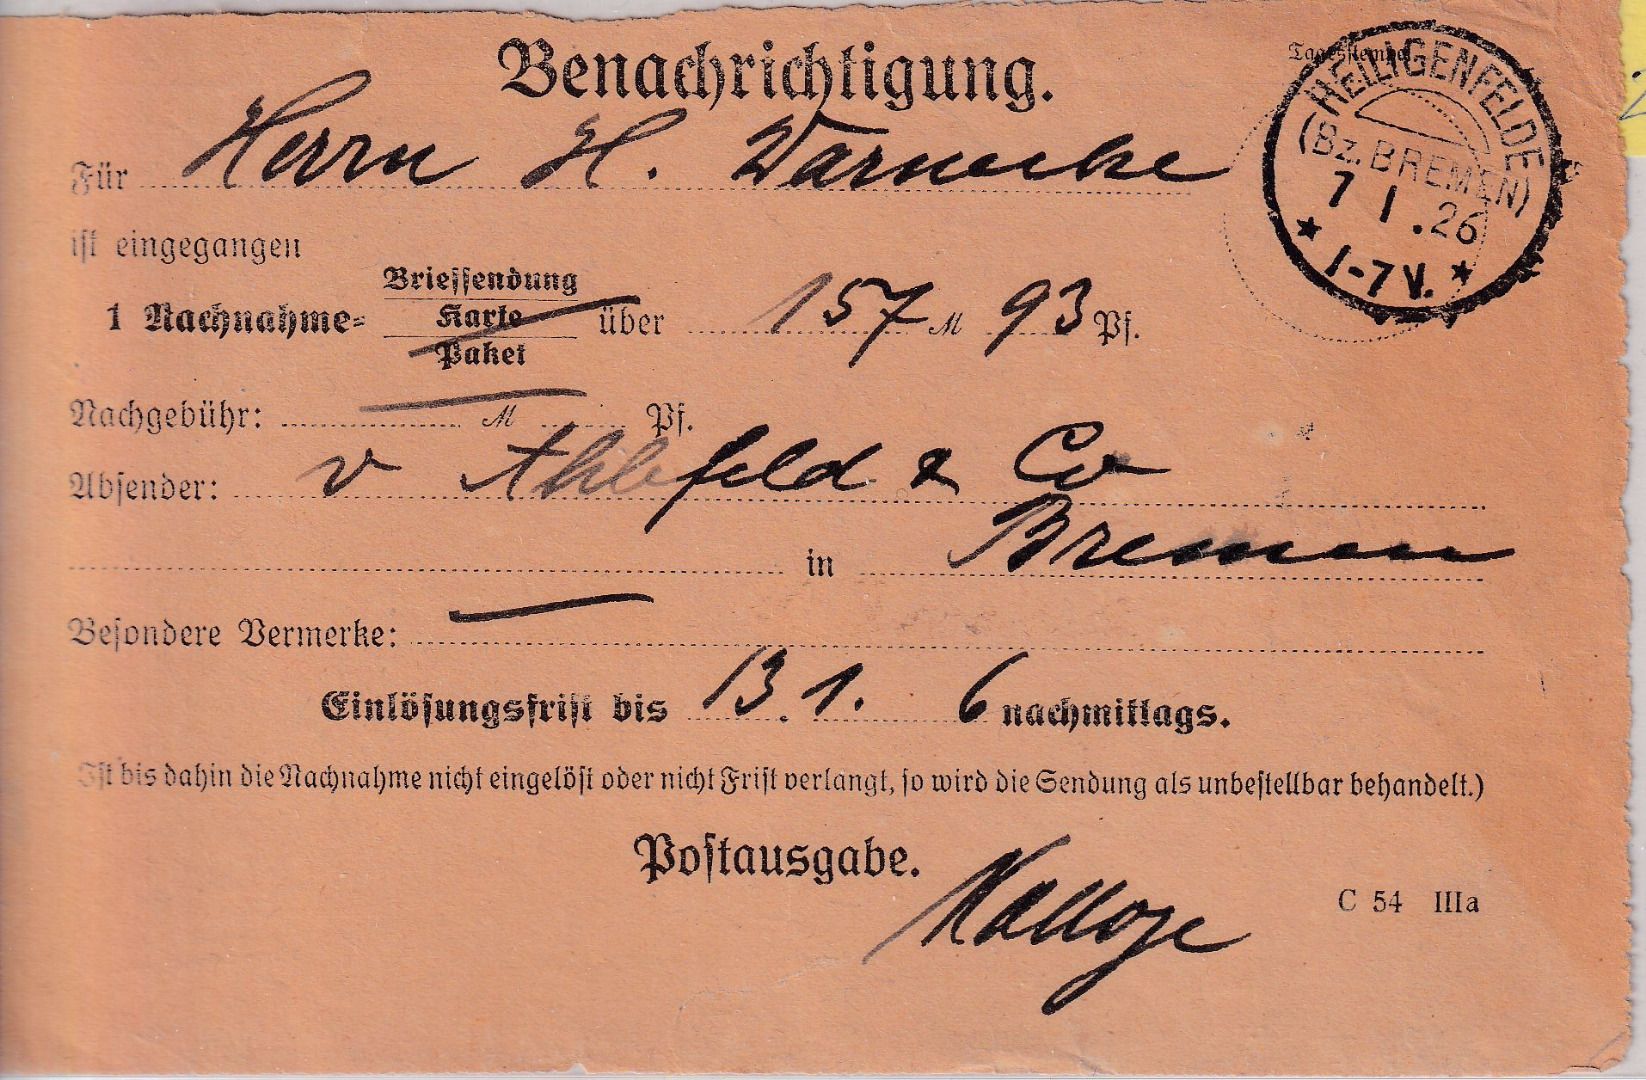 Benachrichtigung.
Tagesstempel
HEILIGENFELDE
(Bz. BREMEN)
7 1 .26
★ 1-7 V. ★
Für Herrn H. Warnecke
ist eingegangen
1 Nachnahme- Briefsendung Karte Paket über 157 M 93 Pf.
Nachgebühr: M Pf.
Absender: v Ahlefeld & Co
in Bremen
Besondere Vermerke:
Einlösungsfrist bis 13. 1. 6 nachmittags.
Ist bis dahin die Nachnahme nicht eingelöst oder nicht Frist verlangt, so wird die Sendung als unbestellbar behandelt.)
Postausgabe.
C 54 IIIa